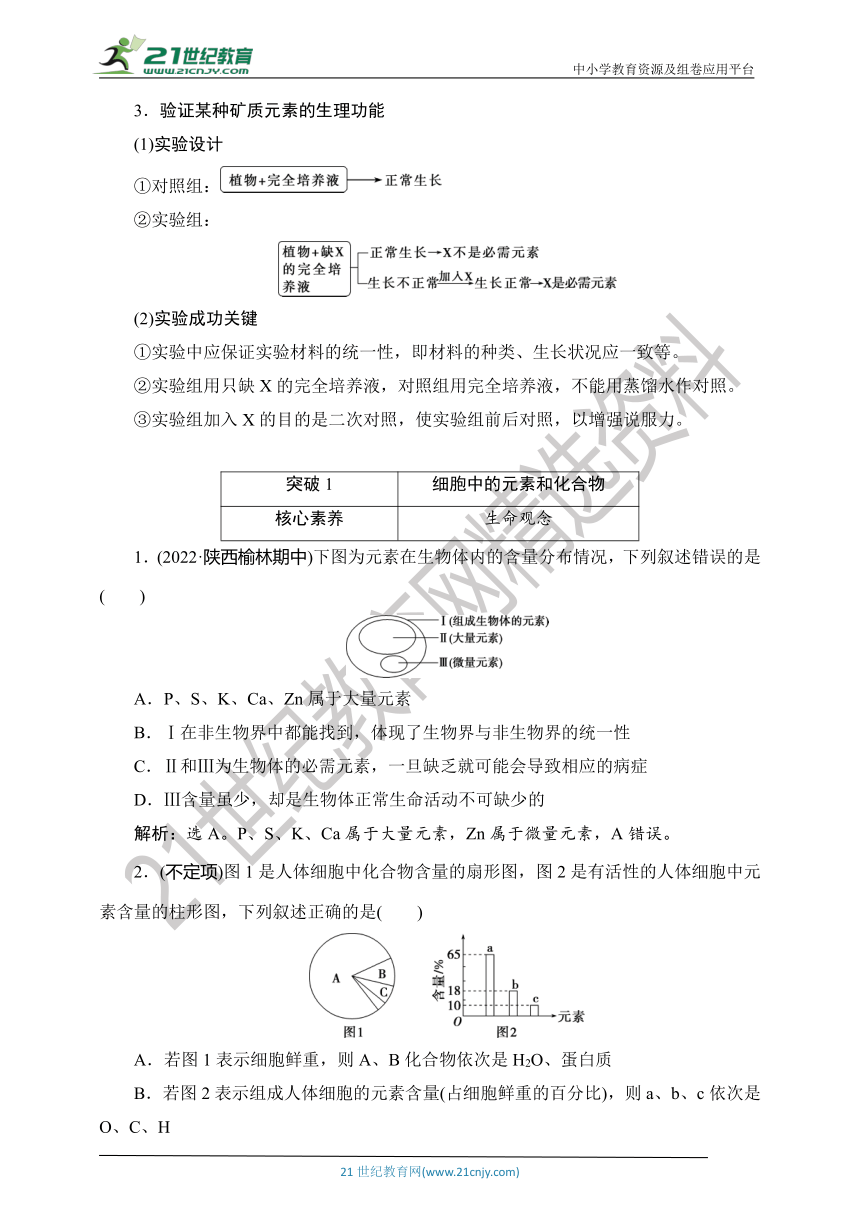 21世纪教育
www.21cnjy.com
中小学教育资源及组卷应用平台
3．验证某种矿质元素的生理功能
(1)实验设计
①对照组：植物+完全培养液 正常生长
②实验组：
植物+缺X的完全培养液
正常生长→X不是必需元素
生长不正常 加入X 生长正常→X是必需元素
(2)实验成功关键
①实验中应保证实验材料的统一性，即材料的种类、生长状况应一致等。
②实验组用只缺X的完全培养液，对照组用完全培养液，不能用蒸馏水作对照。
③实验组加入X的目的是二次对照，使实验组前后对照，以增强说服力。
突破1 细胞中的元素和化合物
核心素养 生命观念
1．(2022·陕西榆林期中)下图为元素在生物体内的含量分布情况，下列叙述错误的是
(　　)
Ⅰ(组成生物体的元素)
Ⅱ(大量元素)
Ⅲ(微量元素)
A．P、S、K、Ca、Zn属于大量元素
B．Ⅰ在非生物界中都能找到，体现了生物界与非生物界的统一性
C．Ⅱ和Ⅲ为生物体的必需元素，一旦缺乏就可能会导致相应的病症
D．Ⅲ含量虽少，却是生物体正常生命活动不可缺少的
解析：选A。P、S、K、Ca属于大量元素，Zn属于微量元素，A错误。
2．(不定项)图1是人体细胞中化合物含量的扇形图，图2是有活性的人体细胞中元
素含量的柱形图，下列叙述正确的是(　　)
A B C
图1
含量/%
65 18 10 O
a b c
元素
图2
A．若图1表示细胞鲜重，则A、B化合物依次是H2O、蛋白质
B．若图2表示组成人体细胞的元素含量(占细胞鲜重的百分比)，则a、b、c依次是
O、C、H
21世纪教育网(www.21cnjy.com)
21世纪教育网精选资料